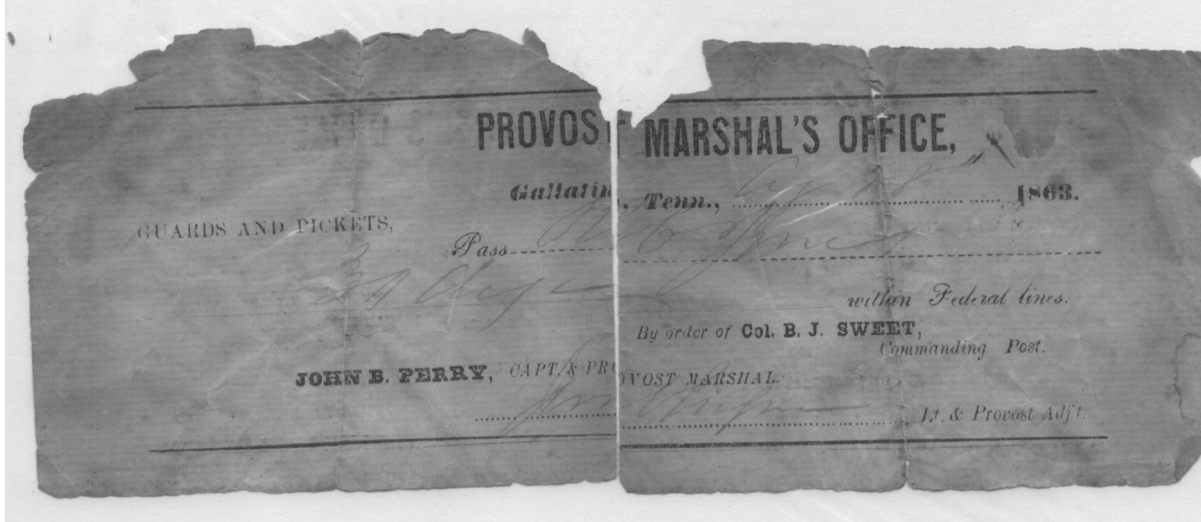 PROVOST MARSHAL'S OFFICE,
Gallatin, Tenn., 1863.
GUARDS AND PICKETS,
Pass
within Federal lines.
By order of Col. B. J. SWEET,
Commanding Post.
JOHN B. PERRY, CAPT. & PROVOST MARSHAL.
Lt. & Provost Adj't.